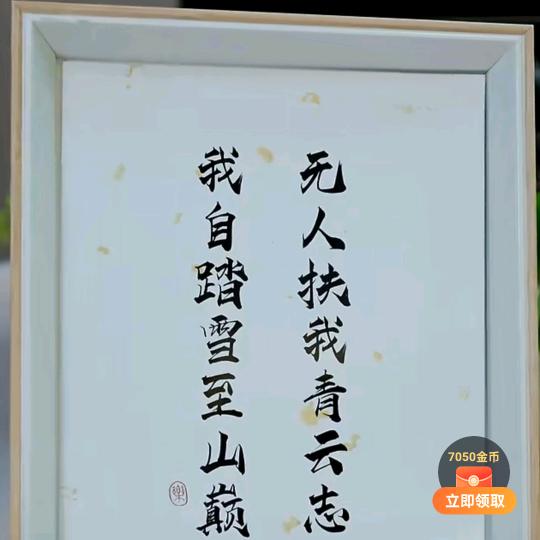 无人扶我青云志
我自踏雪至山巅
7050金币
立即领取